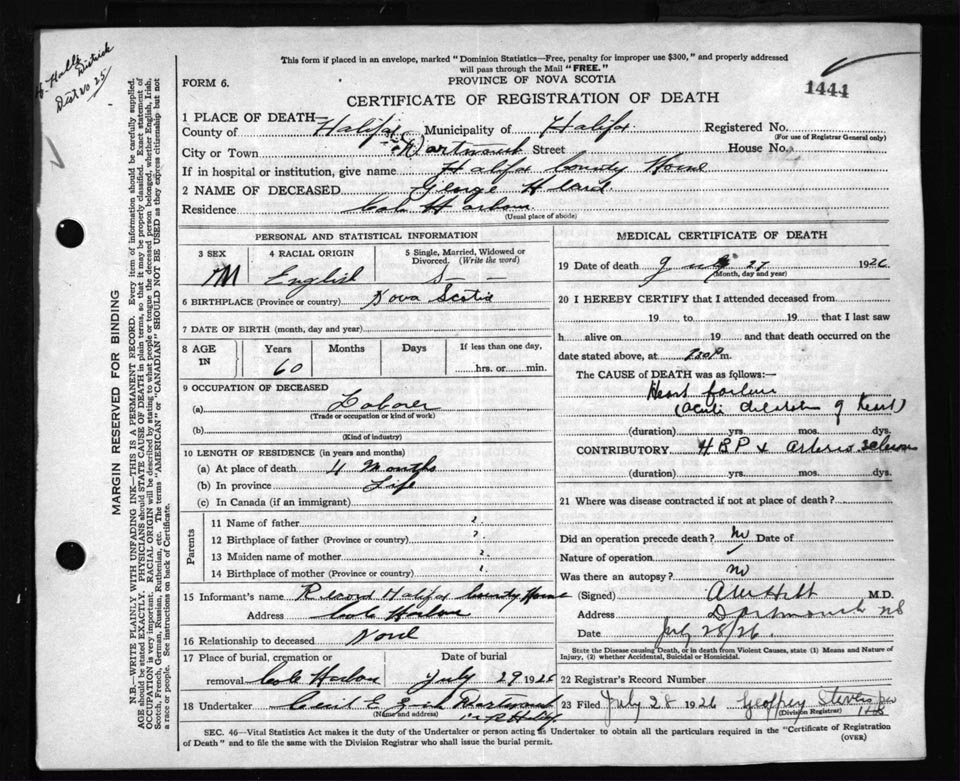 Hfx District
Dist No 25
This form if placed in an envelope, marked "Dominion Statistics—Free, penalty for improper use $300," and properly addressed
will pass through the Mail "FREE."
FORM 6. PROVINCE OF NOVA SCOTIA
1441
CERTIFICATE OF REGISTRATION OF DEATH
1 PLACE OF DEATH—
County of Halifax Municipality of Halifax Registered No.
(For use of Registrar General only)
City or Town Dartmouth Street House No.
If in hospital or institution, give name Halifax County Home
2 NAME OF DECEASED George
Residence Cole Harbour
(Usual place of abode)
PERSONAL AND STATISTICAL INFORMATION
3 SEX 4 RACIAL ORIGIN 5 Single, Married, Widowed or
Divorced. (Write the word)
M English S
6 BIRTHPLACE (Province or country) Nova Scotia
7 DATE OF BIRTH (month, day and year)
8 AGE IN Years Months Days If less than one day,
60 hrs. or min.
9 OCCUPATION OF DECEASED
(a) Laborer
(Trade or occupation or kind of work)
(b)
(Kind of industry)
10 LENGTH OF RESIDENCE (in years and months)
(a) At place of death 4 Months
(b) In province Life
(c) In Canada (if an immigrant)
Parents
11 Name of father ?
12 Birthplace of father (Province or country) ?
13 Maiden name of mother ?
14 Birthplace of mother (Province or country) ?
15 Informant's name Record Halifax County Home
Address Cole Harbour
16 Relationship to deceased None
17 Place of burial, cremation or Date of burial
removal Cole Harbour July 29 1926
18 Undertaker Cecil E. Zink Dartmouth
(Name and address)
MEDICAL CERTIFICATE OF DEATH
19 Date of death July 27 1926
(Month, day and year)
20 I HEREBY CERTIFY that I attended deceased from
19 , to 19 that I last saw
h alive on 19 and that death occurred on the
date stated above, at m.
The CAUSE of DEATH was as follows:—
Heart failure
(acute dilatation of heart)
(duration) yrs. mos. dys.
CONTRIBUTORY HBP & Arterio sclerosis
(duration) yrs. mos. dys.
21 Where was disease contracted if not at place of death?
Did an operation precede death? No Date of
Nature of operation
Was there an autopsy? no
(Signed) M.D.
Address Dartmouth NS
Date July 28/26.
State the Disease causing Death, or in death from Violent Causes, state (1) Means and Nature of
Injury, (2) whether Accidental, Suicidal or Homicidal.
22 Registrar's Record Number
23 Filed July 28 1926 Geoffrey Stevens
(Division Registrar)
SEC. 46—Vital Statistics Act makes it the duty of the Undertaker or person acting as Undertaker to obtain all the particulars required in the "Certificate of Registration
of Death" and to file the same with the Division Registrar who shall issue the burial permit.
(OVER)
MARGIN RESERVED FOR BINDING
N.B.—WRITE PLAINLY WITH UNFADING INK—THIS IS A PERMANENT RECORD. Every item of information should be carefully supplied.
AGE should be stated EXACTLY. PHYSICIANS should STATE CAUSE OF DEATH in plain terms, so that it may be properly classified. Exact statement of
OCCUPATION is very important. RACIAL ORIGIN will be described by stating to what people or tongue the deceased person belonged, whether English, Irish,
Scotch, French, German, Russian, Ruthenian, etc. The terms "AMERICAN" or "CANADIAN" SHOULD NOT BE USED as they express citizenship but not
a race or people. See instructions on back of Certificate.